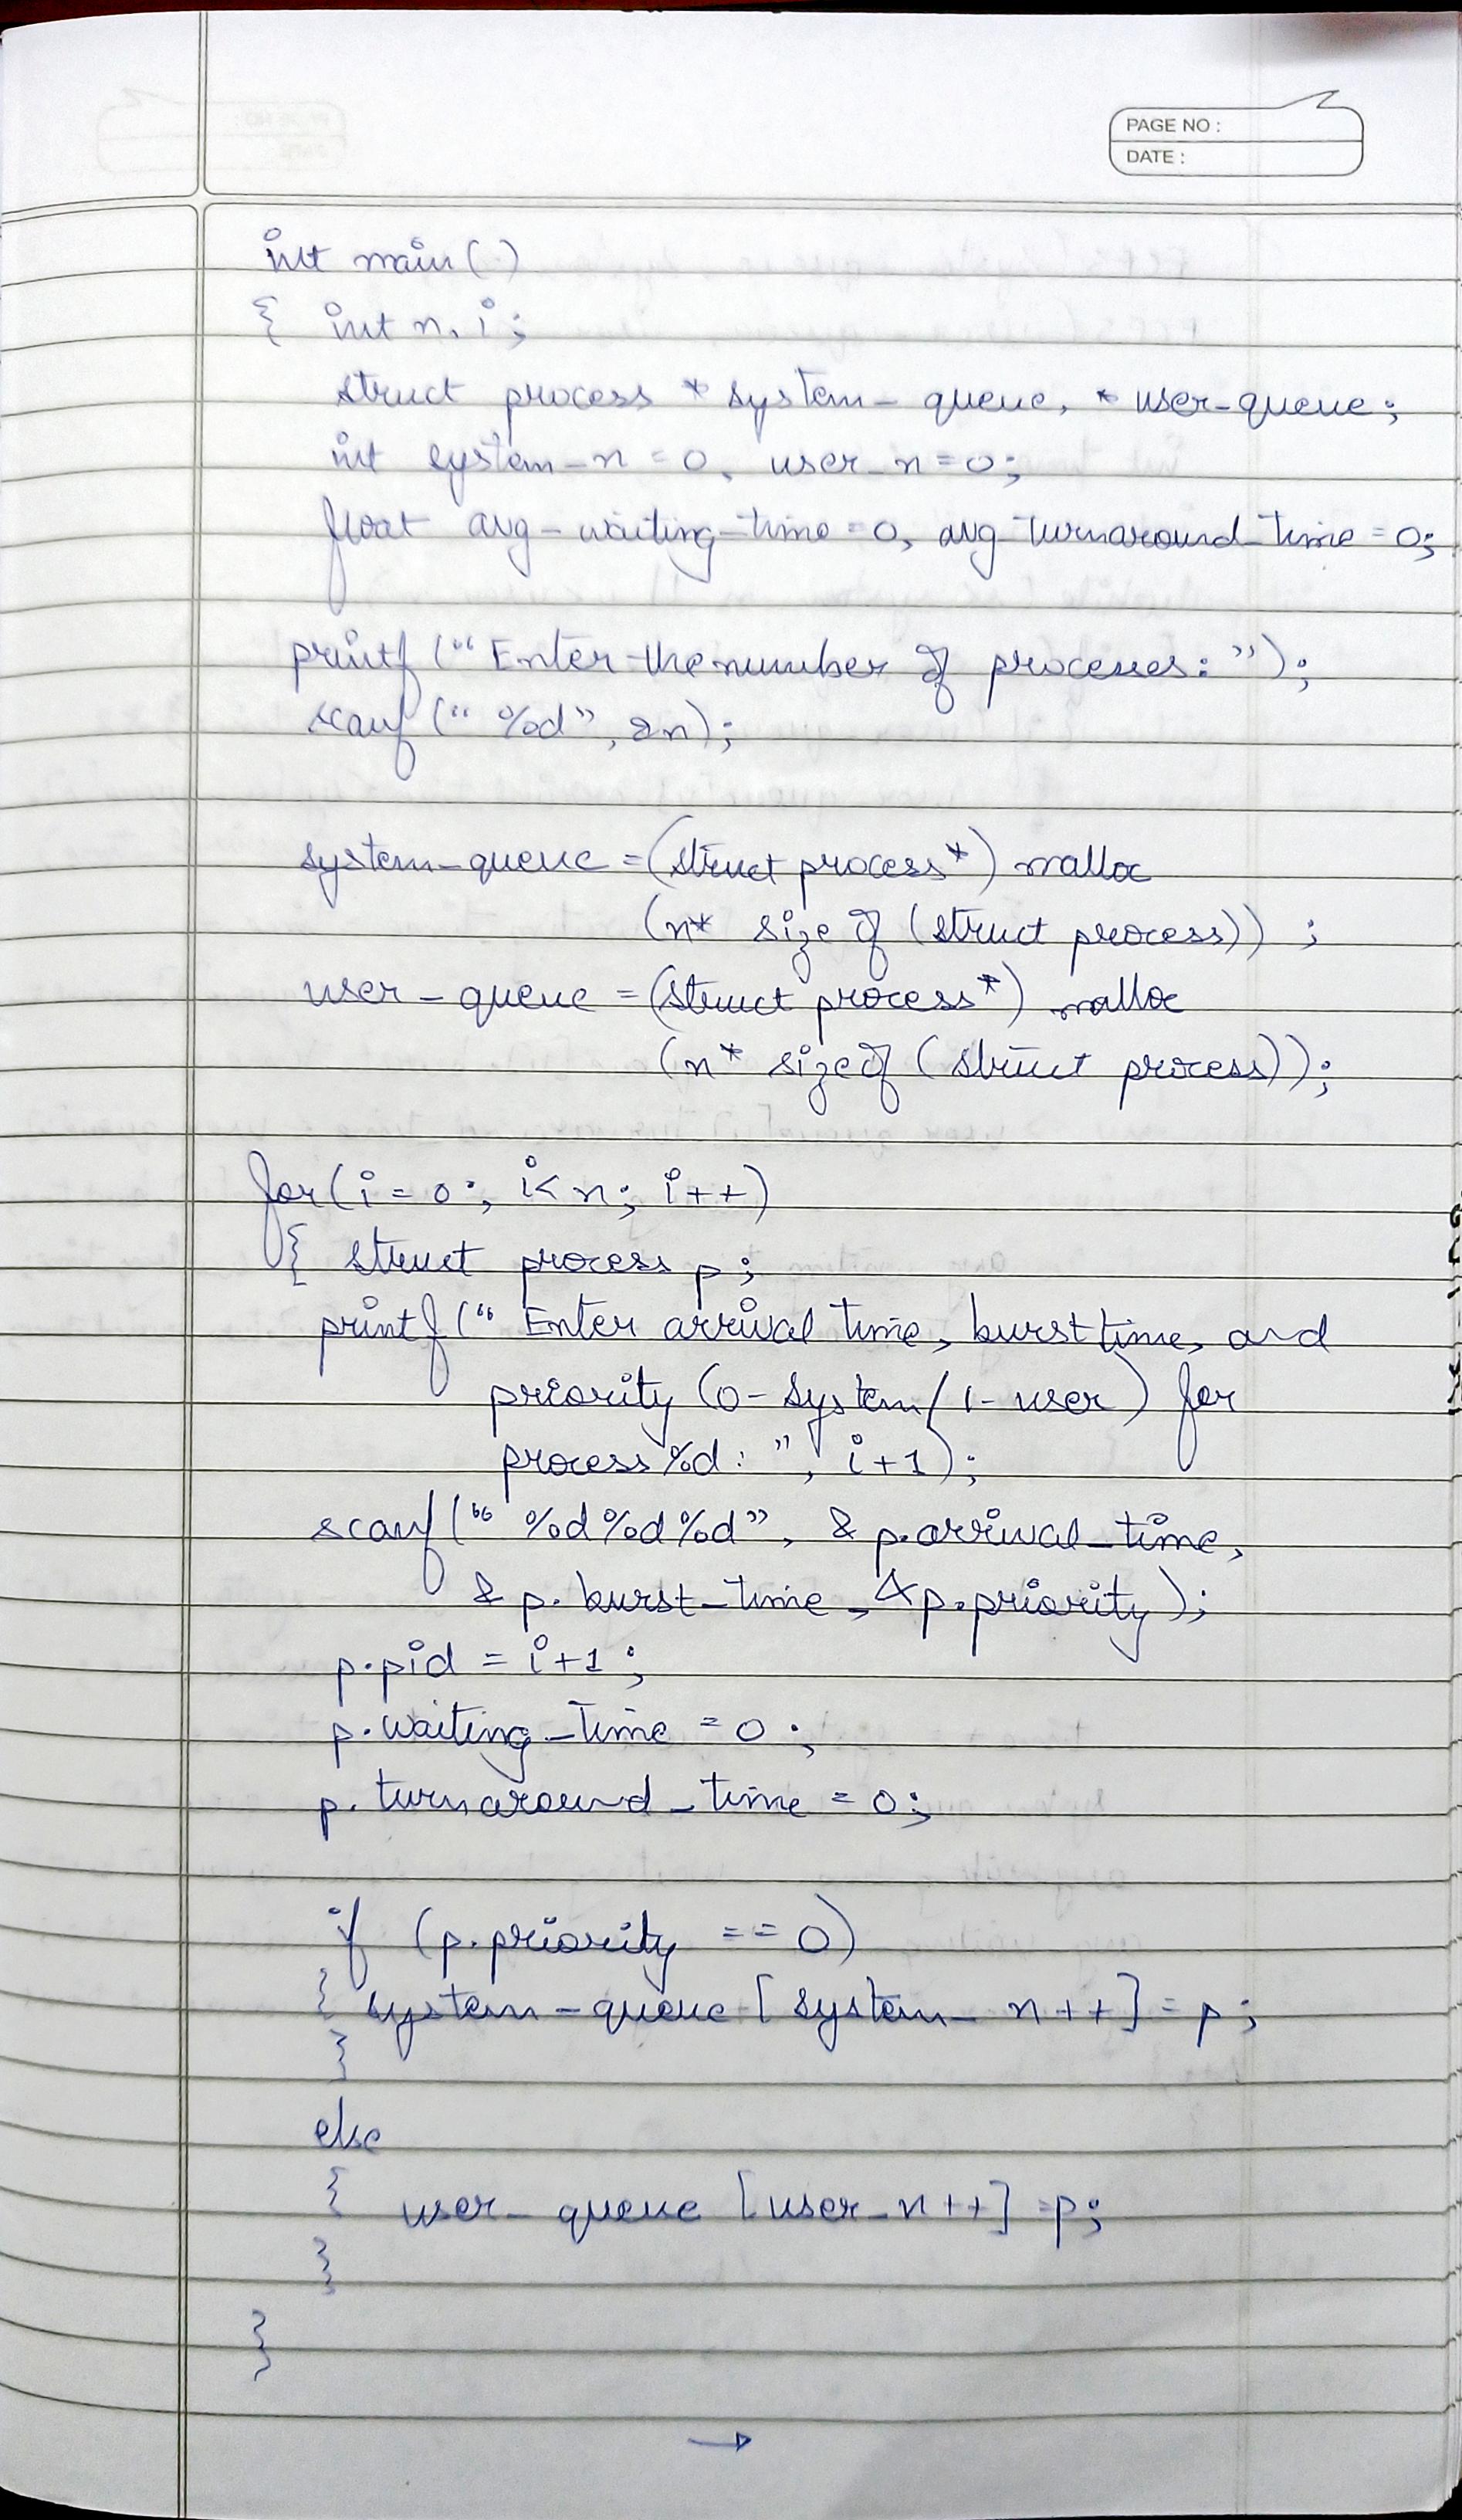 PAGE NO :
DATE :
int main()
{ int n, i;
struct process *system_queue, *user_queue;
int system_n = 0, user_n = 0;
float avg_waiting_time = 0, avg_turnaround_time = 0;
printf (“ Enter the number of processes: ”);
scanf (“ %d”, &n);
system_queue = (struct process*) malloc
(n* size of (struct process)) ;
user_queue = (struct process*) malloc
(n* sizeof (struct process));
for(i = 0; i< n; i++)
{ struct process p;
printf (“ Enter arrival time, burst time, and
priority (0-system/1-user) for
process %d: ”, i+1);
scanf (“ %d%d%d”, & p.arrival_time,
& p.burst_time, &p.priority);
p.pid = i+1;
p.waiting_time = 0;
p.turnaround_time = 0;
if (p.priority == 0)
{ system_queue [system_n++] = p;
}
else
{ user_queue [user_n++] = p;
}
}
→